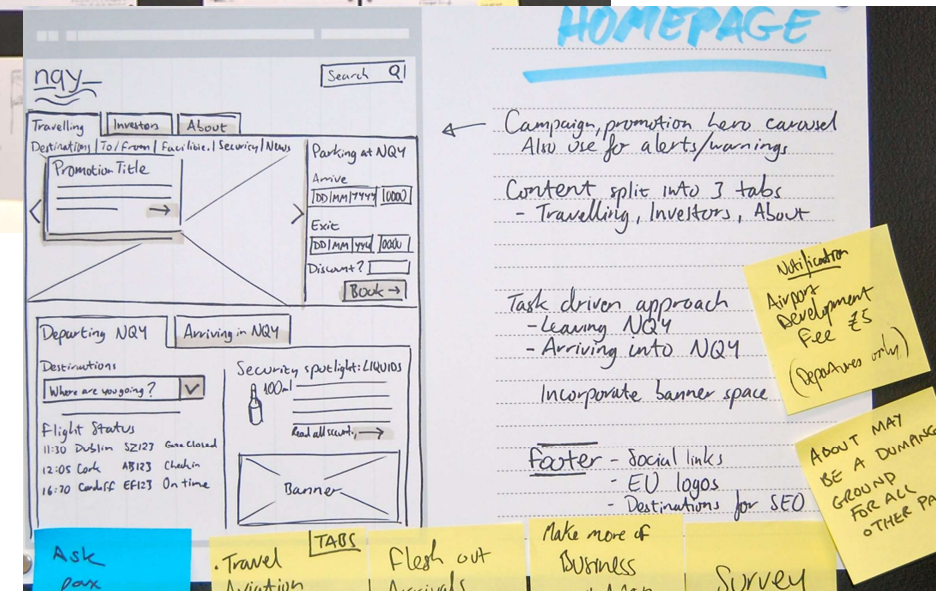 HOMEPAGE
nqy
Search
Travelling
Investors
About
Destinations | To/From | Facilities | Security | News
Promotion Title
Parking at NQY
Arrive
DD|MM|YYYY 0000
Exit
DD|MM|YYY 0000
Discount?
Book →
Departing NQY
Arriving in NQY
Destinations
Where are you going?
Flight Status
11:30 Dublin SZ123 Gate Closed
12:05 Cork AB123 Checkin
16:20 Cardiff EF123 On time
Security spotlight: LIQUIDS
100ml
Read all
Banner
Campaign, promotion hero carousel
Also use for alerts/warnings
Content split into 3 tabs
- Travelling, Investors, About
Task driven approach
- Leaving NQY
- Arriving into NQY
Incorporate banner space
footer - Social links
- EU logos
- Destinations for SEO
Notification
Airport
Development
Fee £5
(Departures only)
ABOUT MAY
BE A DUMPING
GROUND
FOR ALL
OTHER
Ask
TABS
• Travel
Aviation
Flesh out
Arrivals
Make more of
Business
Survey